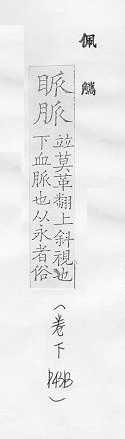 佩觿
眽脈
竝莫革翻上斜視也
下血脈也从永者俗
(卷下 P43B)